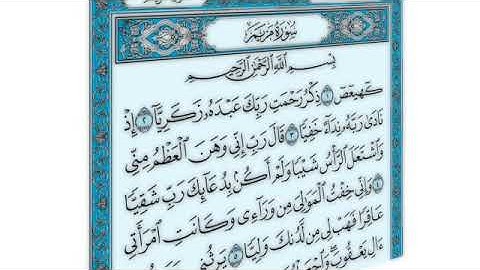 سُورَةُ مَرْيَمَ
بِسْمِ ٱللَّهِ ٱلرَّحْمَٰنِ ٱلرَّحِيمِ
كٓهيعٓصٓ ١ ذِكْرُ رَحْمَتِ رَبِّكَ عَبْدَهُۥ زَكَرِيَّآ ٢ إِذْ
نَادَىٰ رَبَّهُۥ نِدَآءً خَفِيًّا ٣ قَالَ رَبِّ إِنِّى وَهَنَ ٱلْعَظْمُ مِنِّى
وَٱشْتَعَلَ ٱلرَّأْسُ شَيْبًا وَلَمْ أَكُنۢ بِدُعَآئِكَ رَبِّ شَقِيًّا
٤ وَإِنِّى خِفْتُ ٱلْمَوَٰلِىَ مِن وَرَآءِى وَكَانَتِ ٱمْرَأَتِى
عَاقِرًا فَهَبْ لِى مِن لَّدُنكَ وَلِيًّا ٥ يَرِثُنِى
ءَالِ يَعْقُوبَ